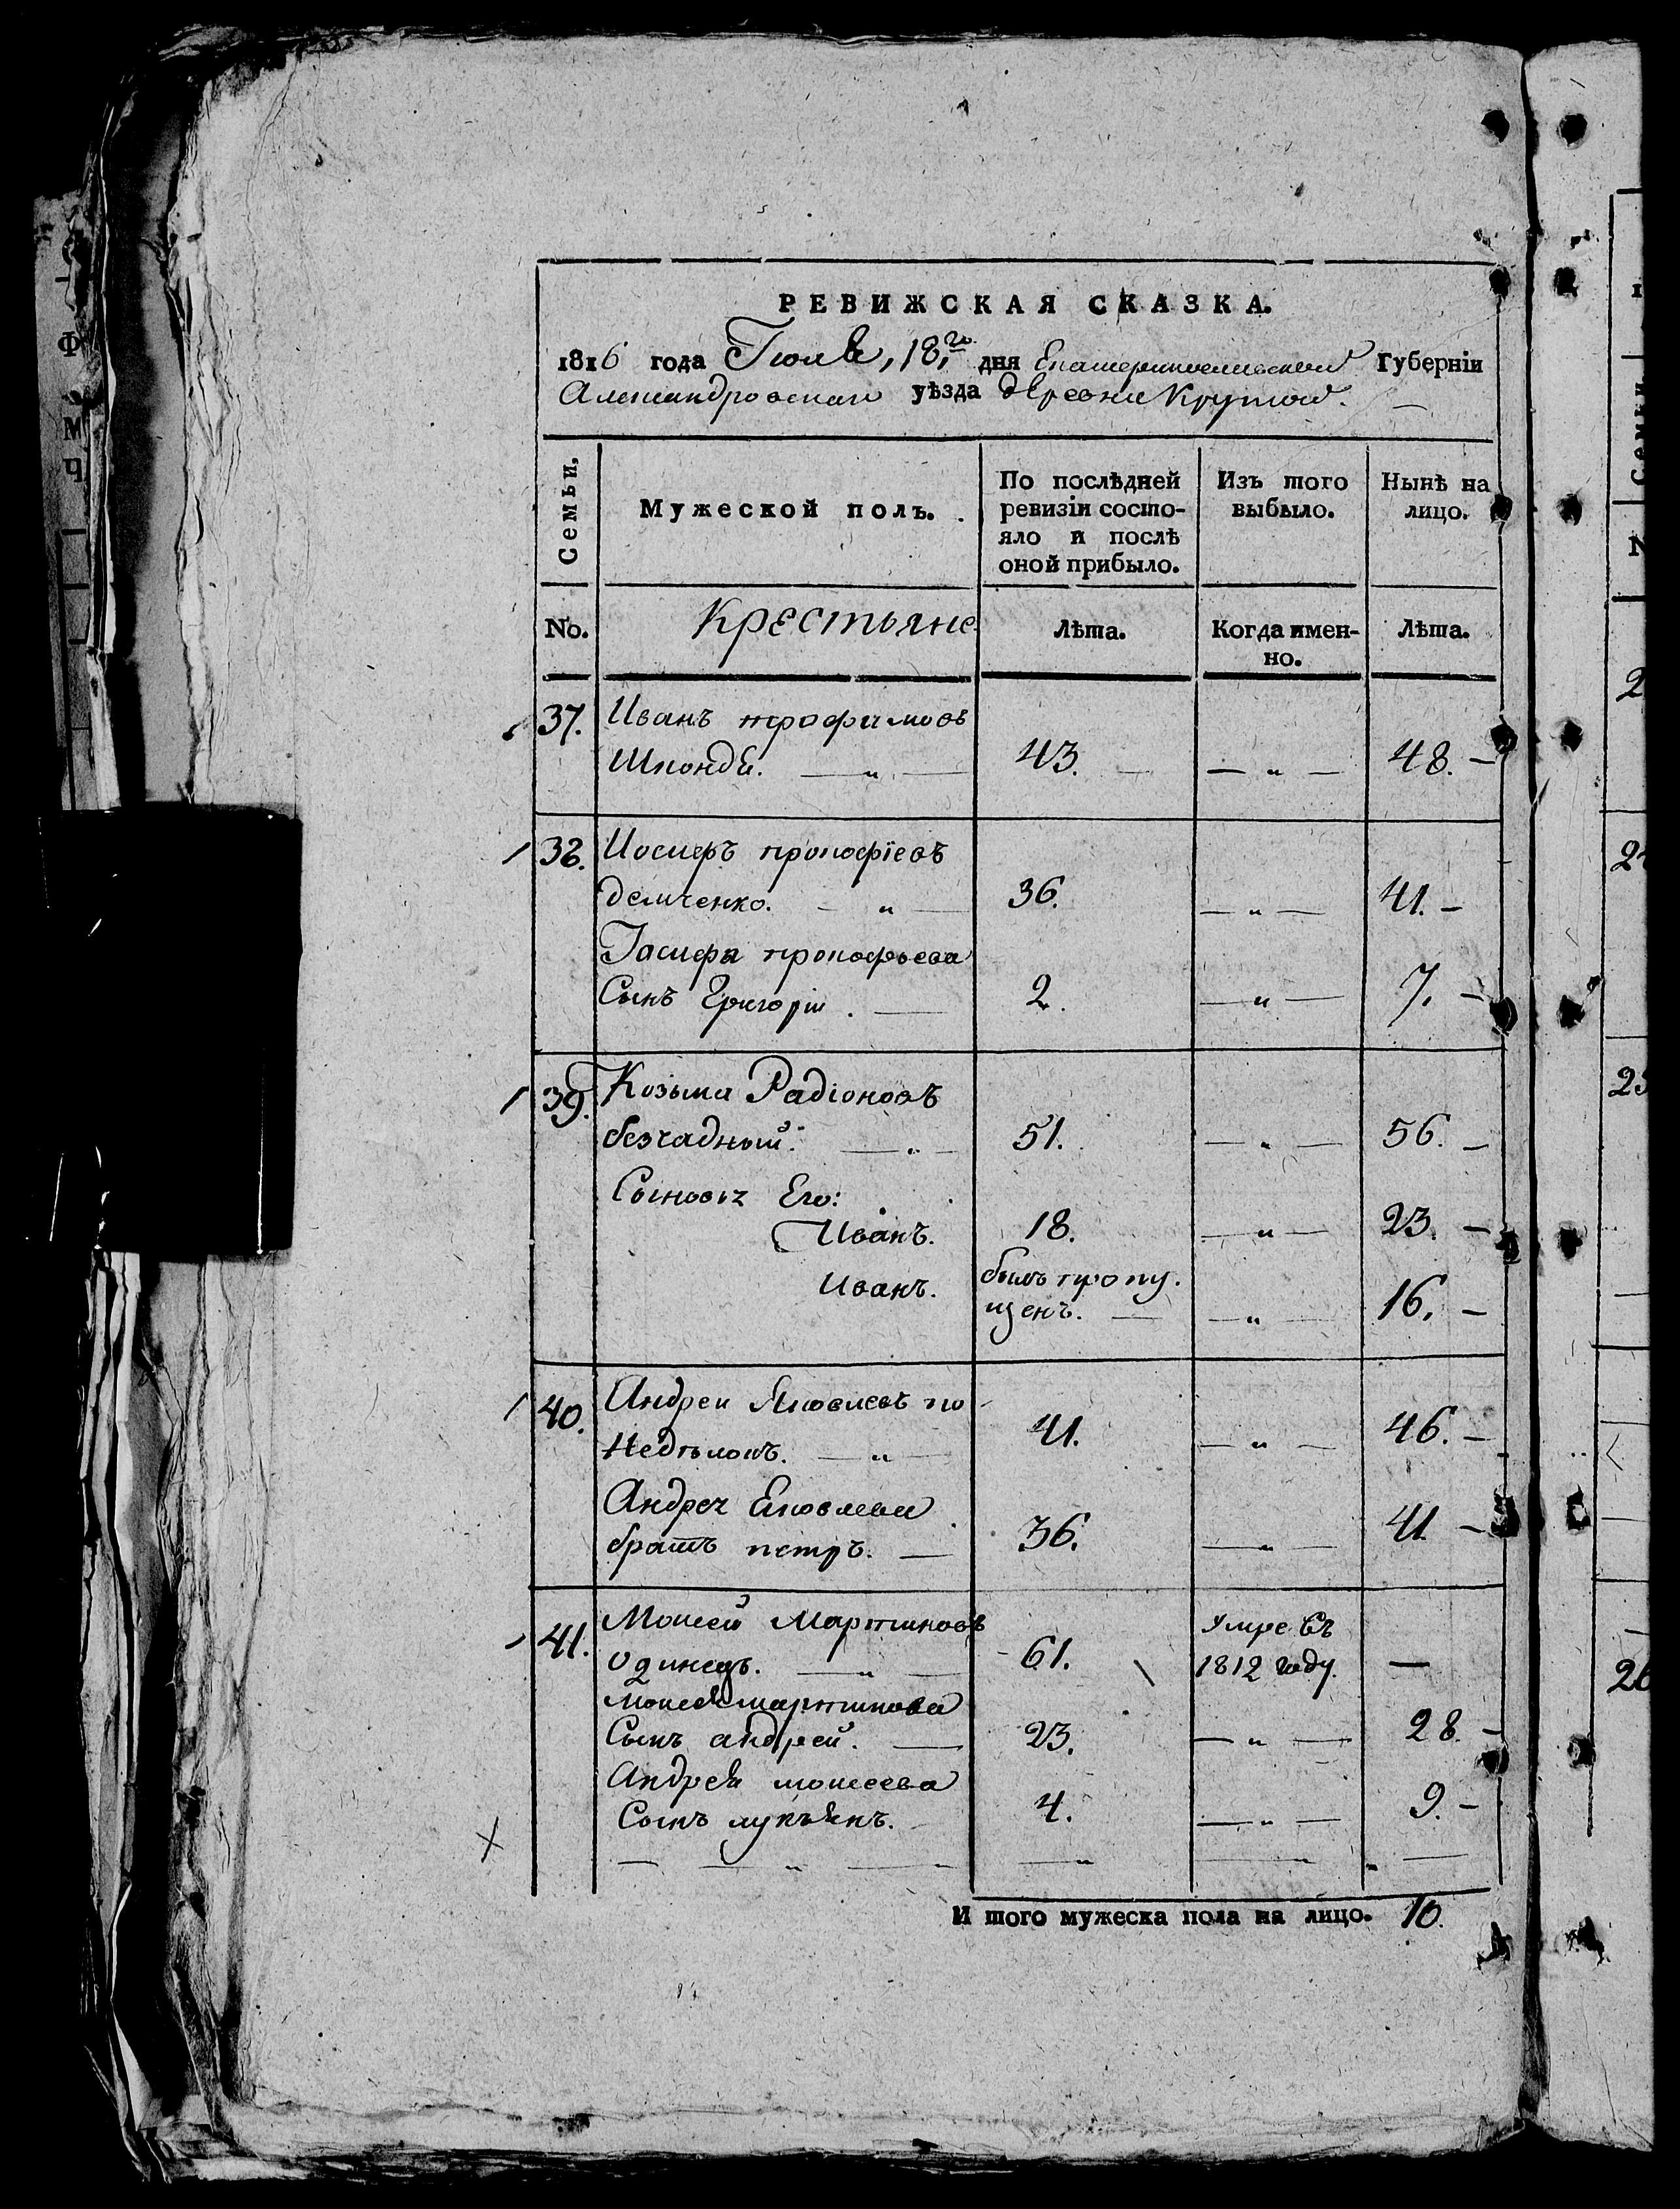 РЕВИЖСКАЯ СКАЗКА.
1816 года Іюля, 18,го дня Екатеринославской Губерніи
Александровскаго уѣзда деревни Крутой.
Семьи,
Мужеской полъ.
По послѣдней ревизіи состо-
яло и послѣ
оной прибыло.
Изъ того
выбыло.
Нынѣ на
лицо.
No.
Крестьяне
Лѣта.
Когда имен-
но.
Лѣта.
37. Иванъ трофимовъ
43. — „ — 48. —
38. Иосифъ прокофіевъ
демченко. — „ — 36. — „ — 41. —
Іосифа прокофьева
Сынъ Григоріи. — 2. — „ — 7. —
39. Козьма Радіоновъ
безчадный. — „ — 51. — „ — 56. —
Сыновья Его:
Иванъ. 18. — „ — 23. —
Иванъ. былъ пропу.
щенъ. — — „ — 16. —
40. Андреи Яковлевъ по
Недѣлокъ. — „ — 41. — „ — 46. —
Андрея Яковлева
братъ петръ. — 36. — „ — 41. —
41. Моисей Мартиновъ Умре Въ
одинецъ. — „ — 61. 1812 году. —
моисея мартинова
Сынъ андрей. — 23. — „ — 28. —
Андрея моисеева
Сынъ лукъянъ. 4. — „ — 9. —
И того мужеска пола на лицо. 10.